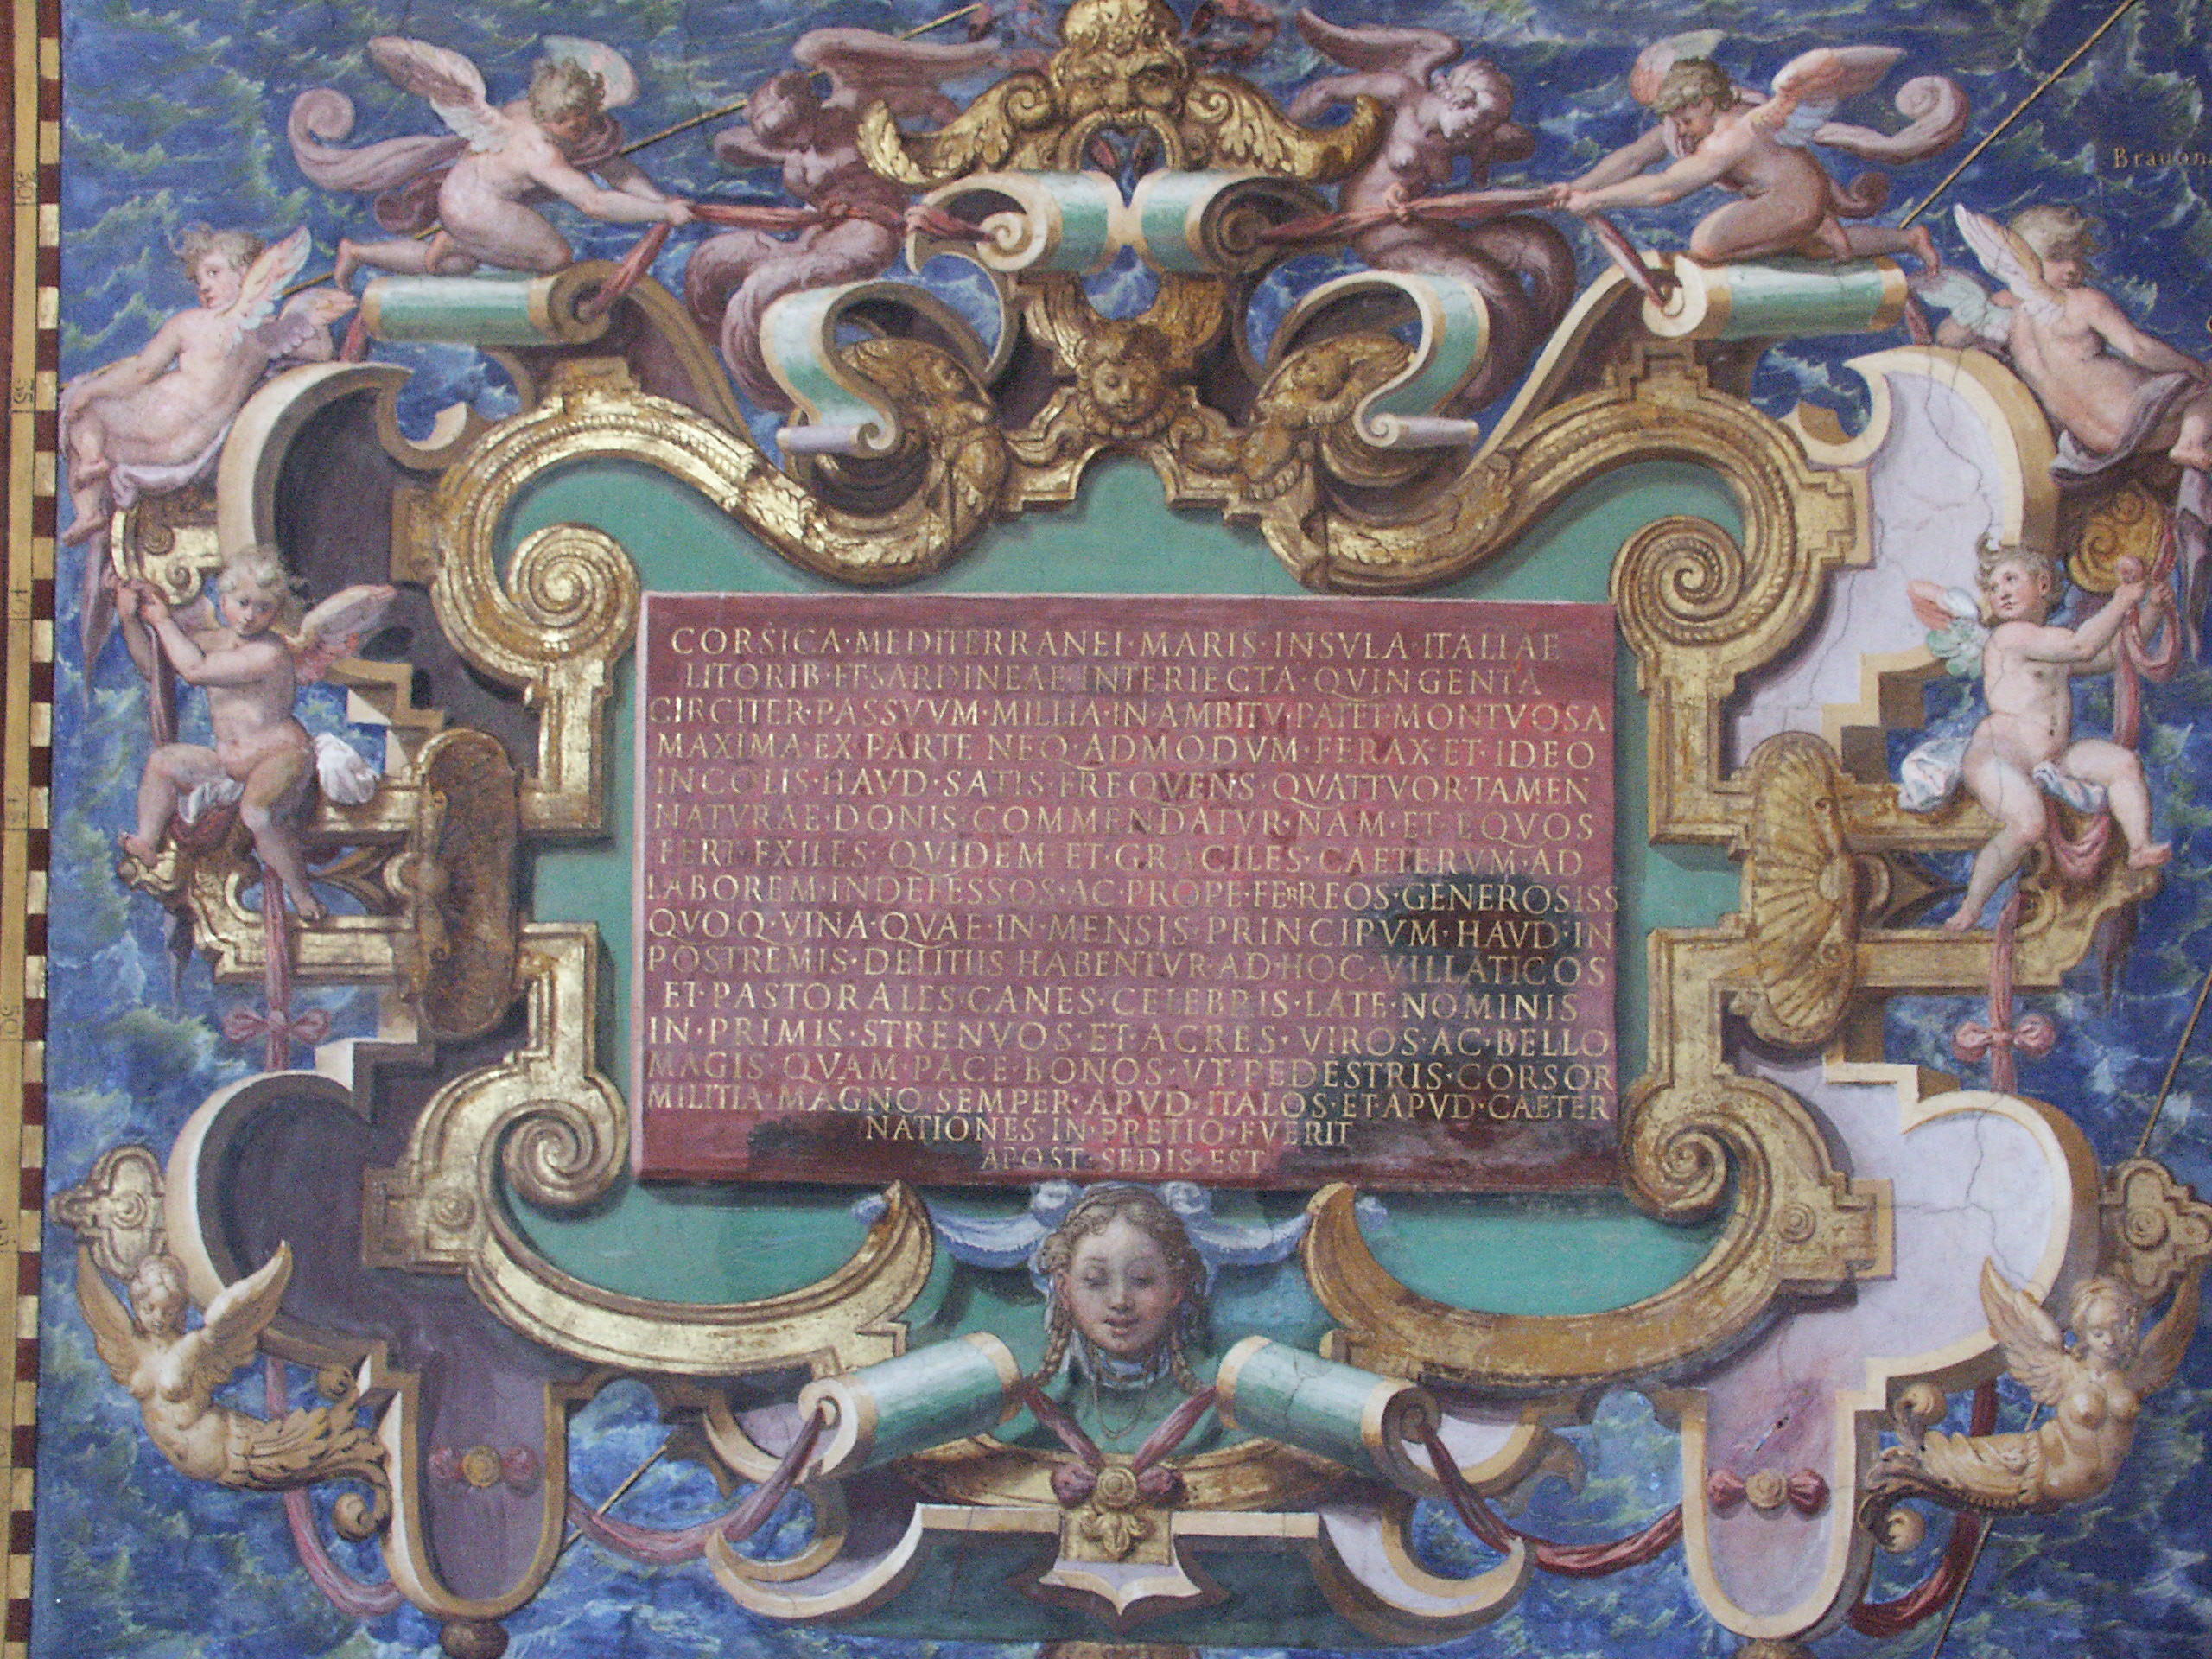 Brauon
30
35
CORSICA·MEDITERRANEI·MARIS·INSVLA·ITALIAE
LITORIB·ET·SARDINEAE·INTERIECTA·QVINGENTA
CIRCITER·PASSVVM·MILLIA·IN·AMBITV·PATET·MONTVOSA
MAXIMA·EX·PARTE NEQ·ADMODVM·FERAX·ET·IDEO
INCOLIS·HAVD·SATIS·FREQVENS·QVATTVOR·TAMEN
NATVRAE·DONIS·COMMENDATVR·NAM·ET·EQVOS
FERT·EXILES·QVIDEM·ET·GRACILES·CAETERVM·AD
LABOREM·INDEFESSOS·AC·PROPE·FERREOS·GENEROSISS
QVOQ·VINA·QVAE·IN·MENSIS·PRINCIPVM·HAVD·IN
POSTREMIS·DELITIIS HABENTVR·AD·HOC·VILLATICOS
ET·PASTORALES·CANES·CELEBRIS·LATE·NOMINIS
IN·PRIMIS·STRENVOS·ET·ACRES·VIROS·AC·BELLO
MAGIS·QVAM·PACE·BONOS·VT·PEDESTRIS·CORSOR
MILITIA·MAGNO·SEMPER·APVD·ITALOS·ET·APVD·CAETER
NATIONES·IN·PRETIO·FVERIT
APOST·SEDIS·EST
50